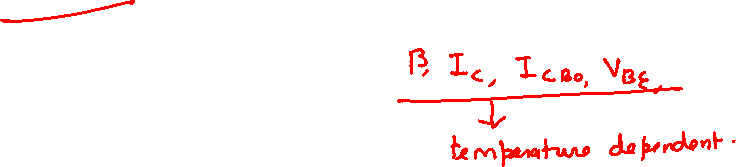 β, I_C, I_CBO, V_BE,
temperature dependent.